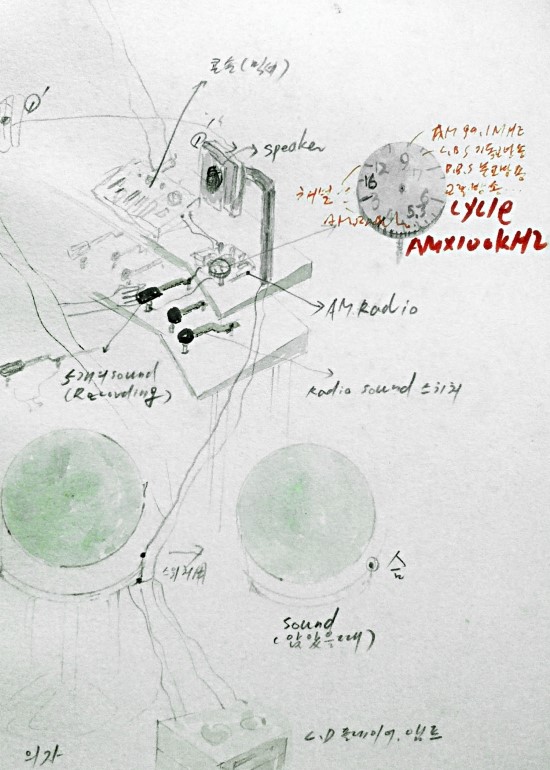 콘솔(믹서)
speaker
AM 99.1MHZ
C.B.S 기독방송
B.B.S 불교방송
채널
12
9
16
6
5.3
CYCLE
AMX100KHZ
AM.Radio
5개의 sound
(Recording)
Radio sound 스위치
솜
sound
(앉았을때)
C.D 플레이어, 앰프
의자